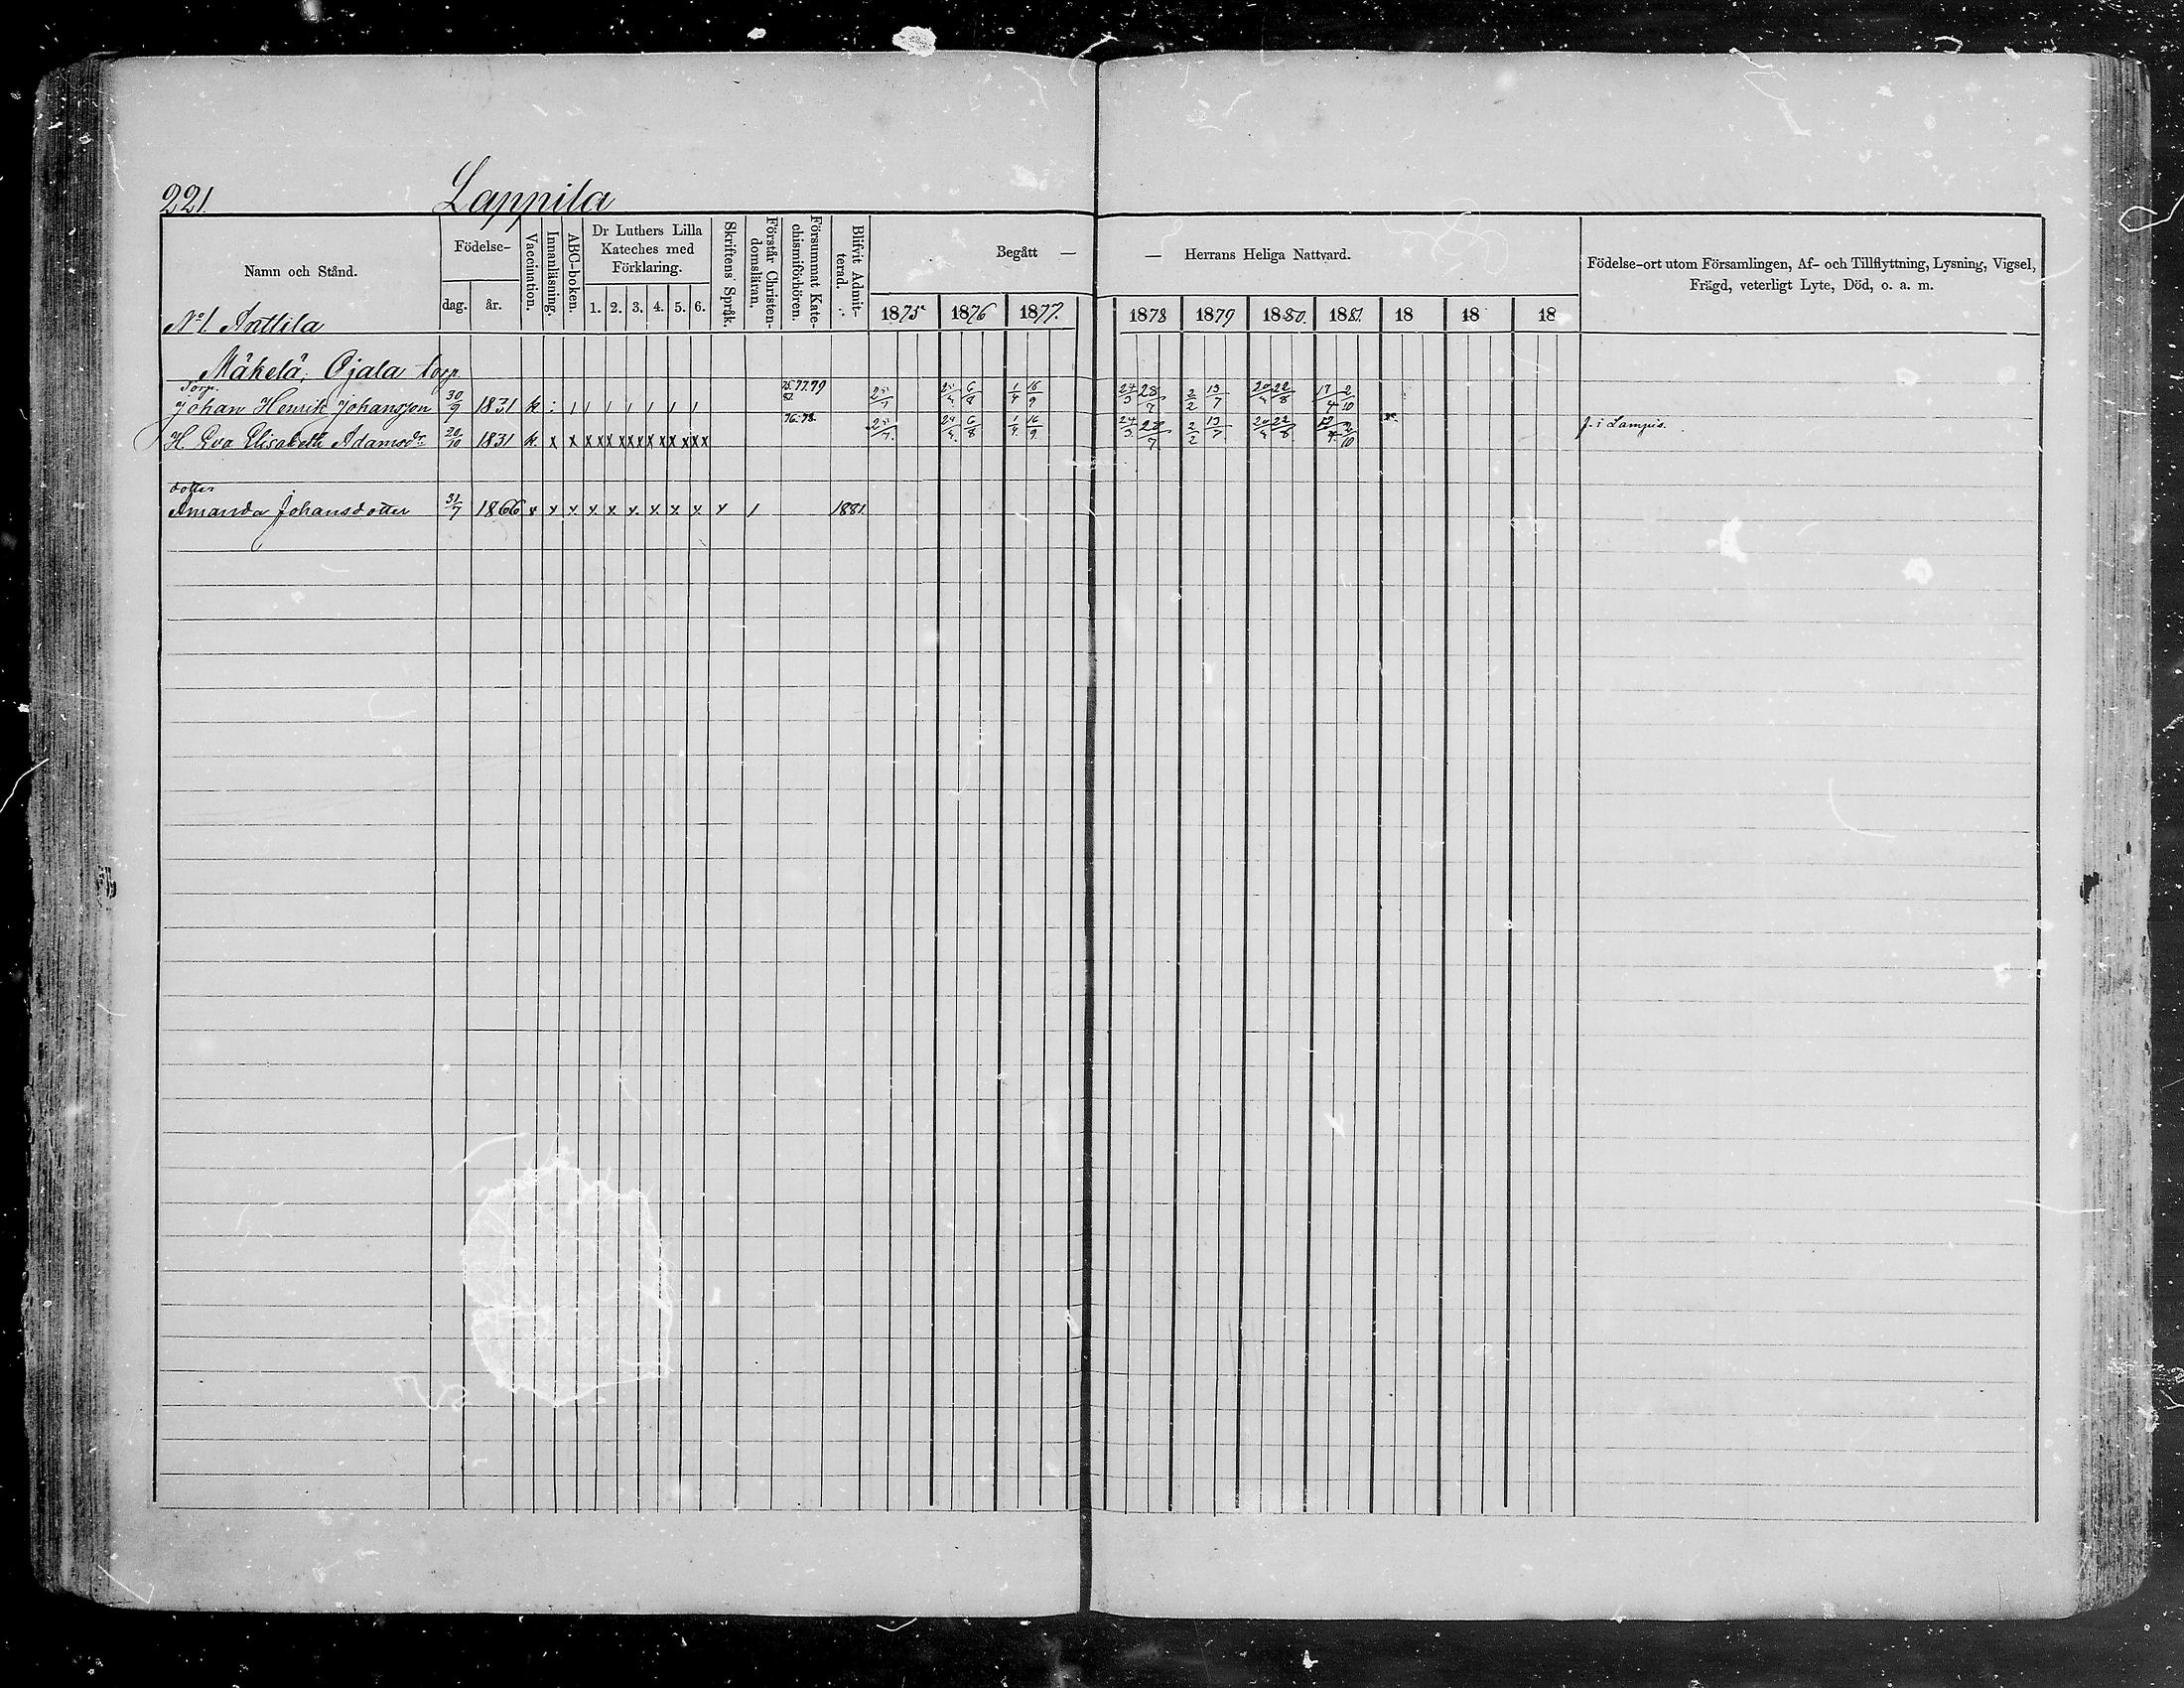 221. Lappila
Namn och Stånd.
Födelse-
dag. år.
Vaccination.
Innanläsning.
ABC-boken.
Dr Luthers Lilla
Kateches med
Förklaring.
1. 2. 3. 4. 5. 6.
Skriftens Språk.
Förstår Christen-
domsläran.
Försummat Kate-
chismiförhören.
Blifvit Admit-
terad.
Begått — — Herrans Heliga Nattvard.
1875 1876 1877. 1878 1879 1880. 1881. 18 18 18
Födelse-ort utom Församlingen, Af- och Tillflyttning, Lysning, Vigsel,
Frägd, veterligt Lyte, Död, o. a. m.
No 1. Anttila
Mäkelä, Ojala torp
Torp.
Johan Henrik Johansson 30/9 1831 k : / / / / / / / 25/7 25/4 6/8 1/4 16/9 24/3 28/7 2/2 13/7 20/4 22/8 17/4 2/10
H. Eva Elisabeth Adamsdr 20/10 1831 k. x x x x x x x x x x x x x 76.78. 25/7. 24/4. 6/8 1/4. 16/9. 24/3. 28/7 2/2 13/7 20/4 22/8 2/10 f. i Lampis.
dotter
Amanda Johansdotter 31/7 1866 x x x x x x x x x x 1 1881.